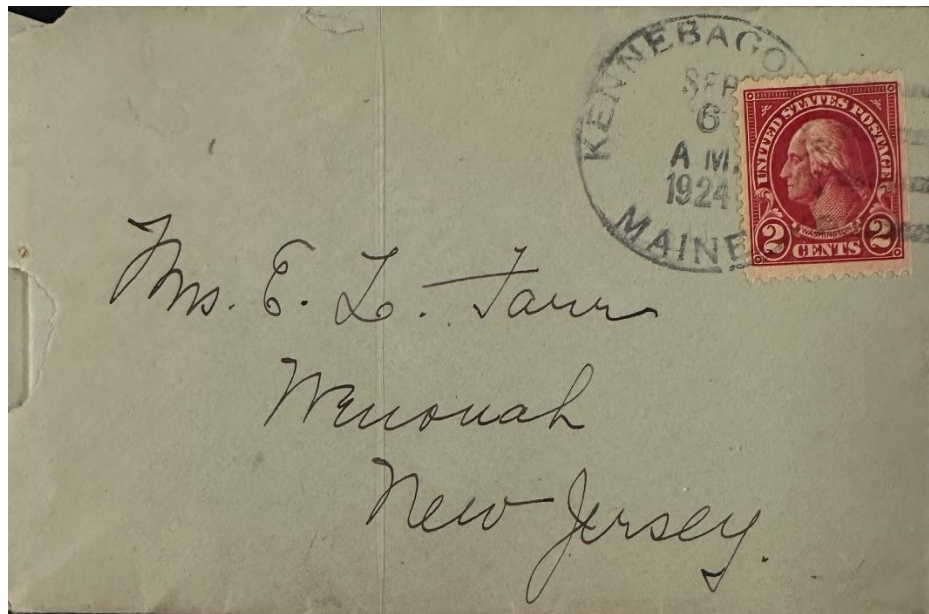 KENNEBAGO
SEP
6
A M
1924
MAINE
UNITED STATES POSTAGE
WASHINGTON
2 CENTS 2
Mrs. E. L. Tarr
Wenonah
New Jersey.